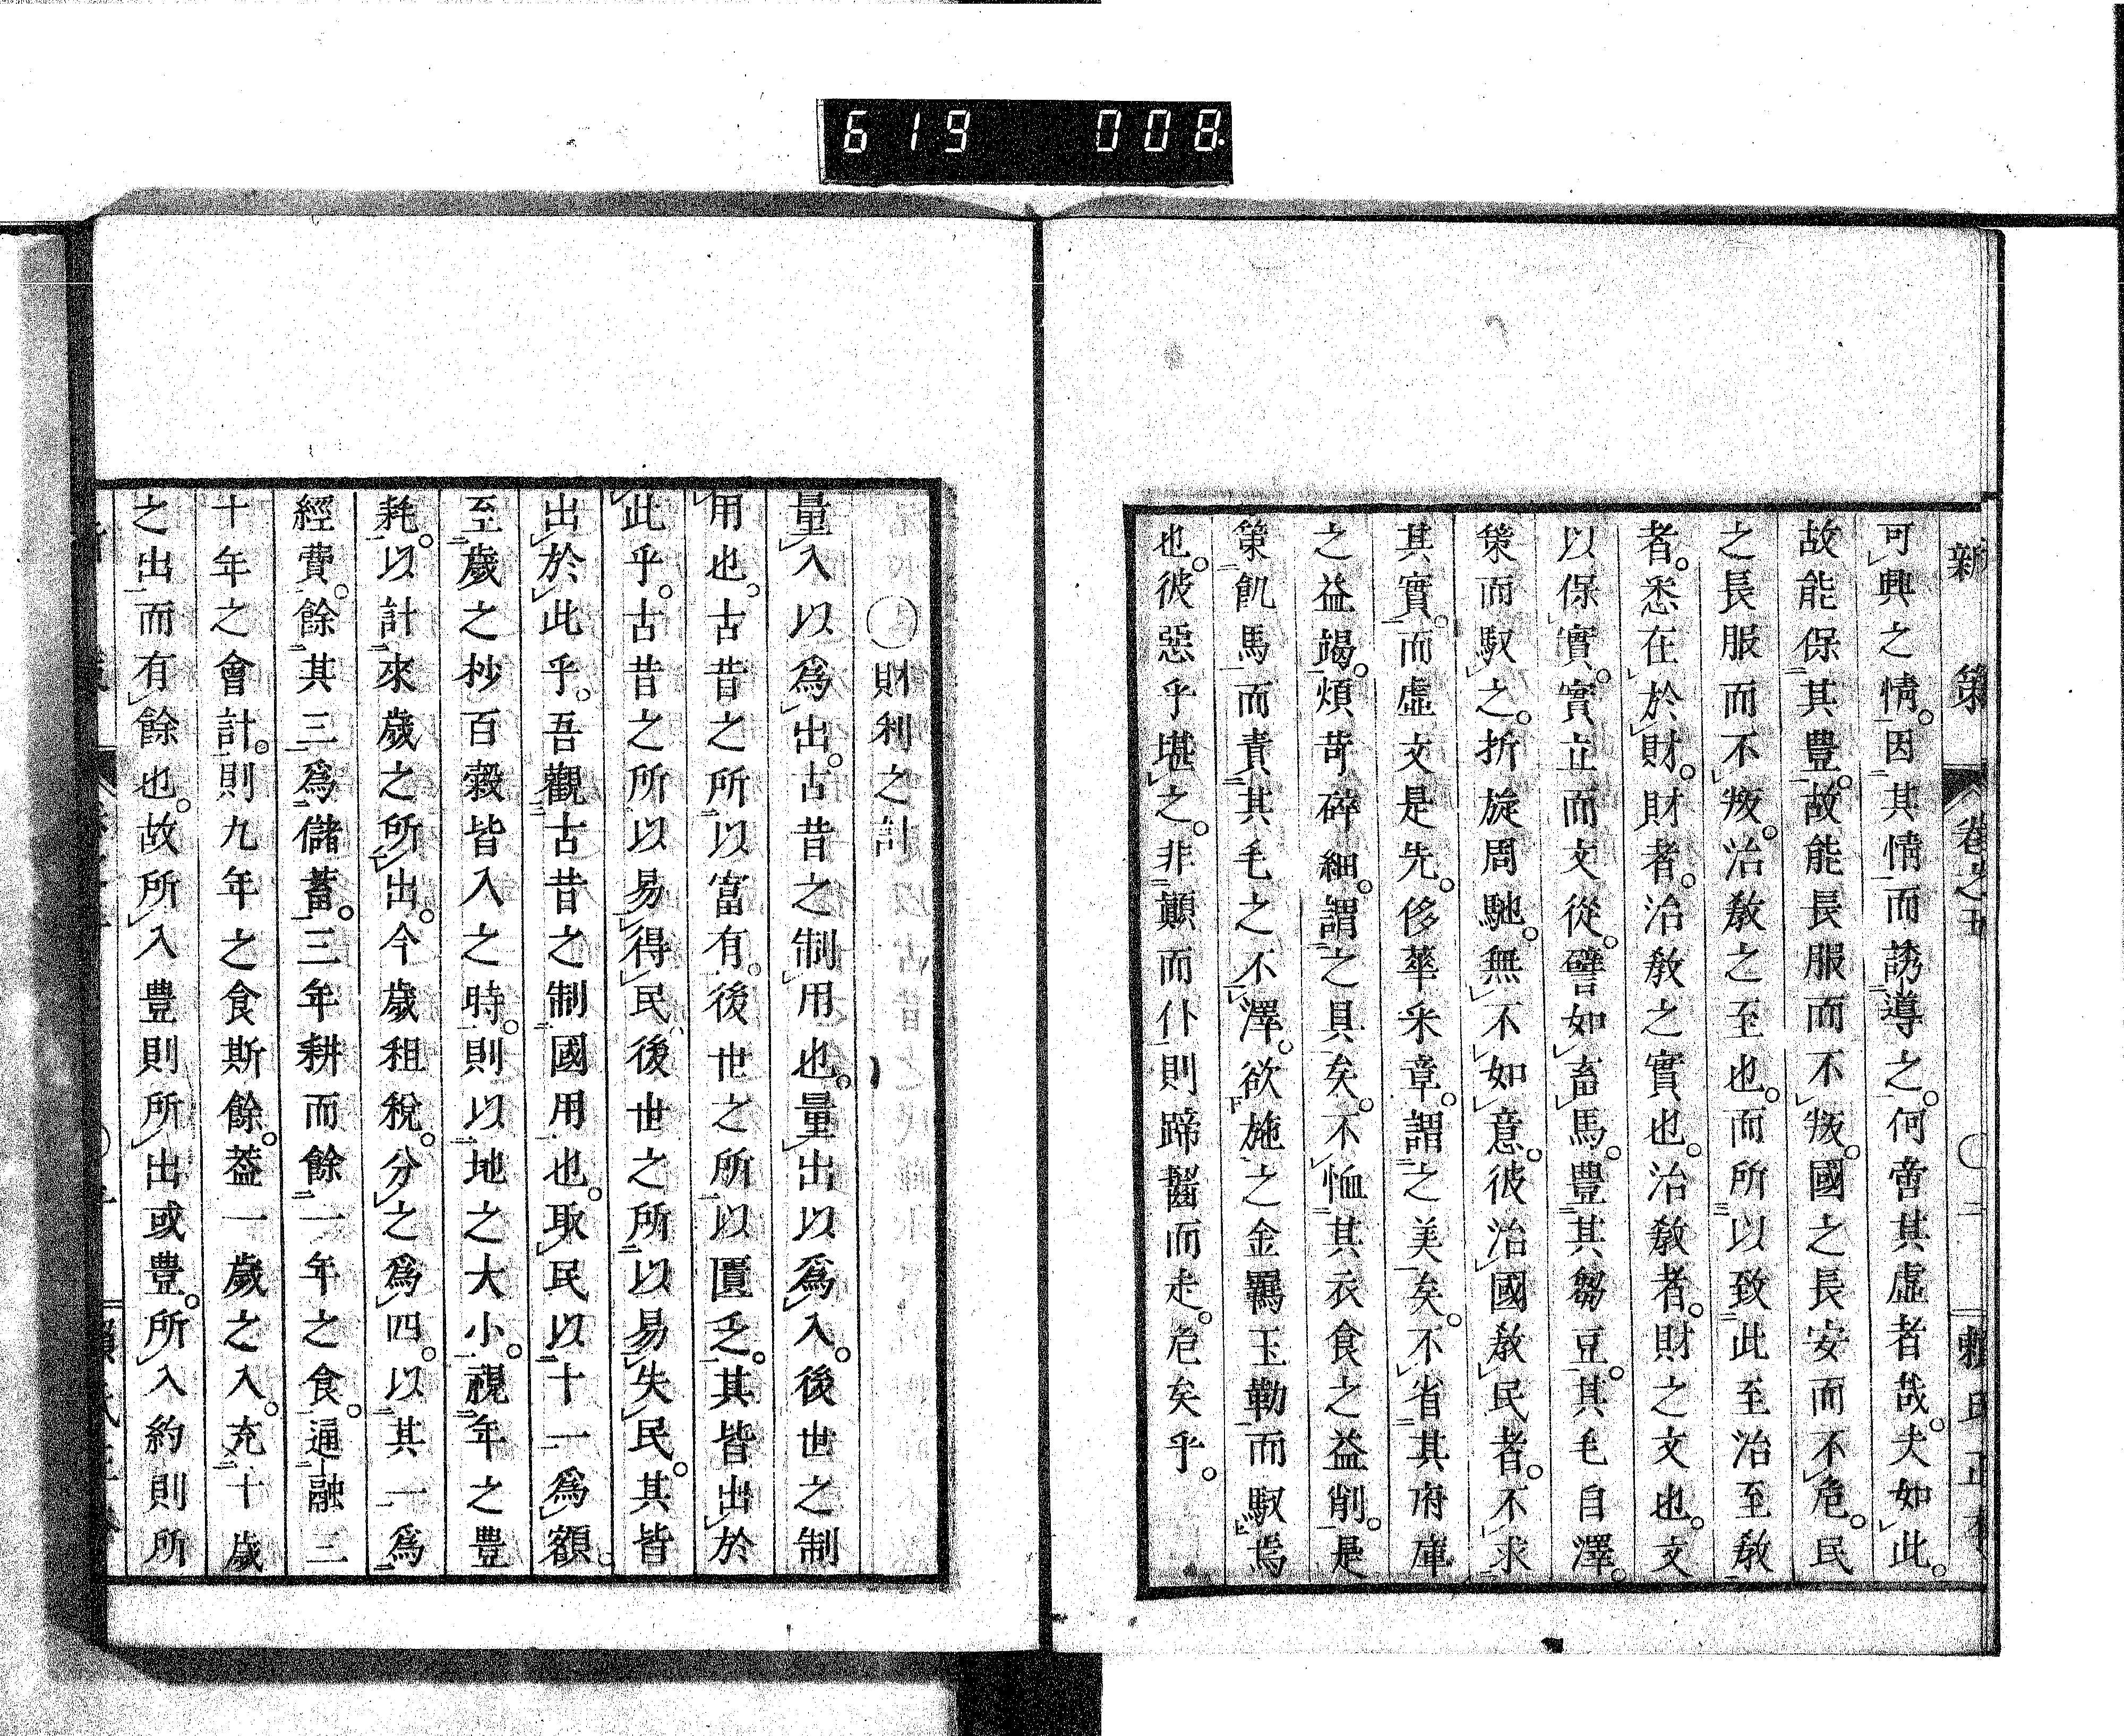 619 008
新策 卷之五 二 賴氏正本
可興之情。因其情而誘導之。何啻其虛者哉。夫如此。
故能保其豊。故能長服而不叛。國之長安而不危。民
之長服而不叛。治敎之至也。而所以致此至治至敎
者。悉在於財。財者。治敎之實也。治敎者。財之文也。文
以保實。實立而文從。譬如畜馬。豊其芻豆。其毛自澤。
策而馭之。折旋周馳。無不如意。彼治國敎民者。不求
其實。而虛文是先。侈華采章。謂之美矣。不省其府庫
之益竭。煩苛碎細。謂之具矣。不恤其衣食之益削。是
策飢馬而責其毛之不澤。欲施之金羈玉勒而馭焉
也。彼惡乎堪之。非顚而仆則蹄齧而走。危矣乎。
○財利之計
量入以爲出。古昔之制用也。量出以爲入。後世之制
用也。古昔之所以富有。後世之所以匱乏。其皆出於
此乎。古昔之所以易得民後世之所以易失民。其皆
出於此乎。吾觀古昔之制國用也。取民以十一爲額。
至歲之杪百穀皆入之時。則以地之大小。視年之豊
耗。以計來歲之所出。今歲租稅。分之爲四。以其一爲
經費。餘其三爲儲蓄。三年耕而餘一年之食。通融三
十年之會計。則九年之食斯餘。蓋一歲之入。充十歲
之出而有餘也。故所入豊則所出或豊。所入約則所